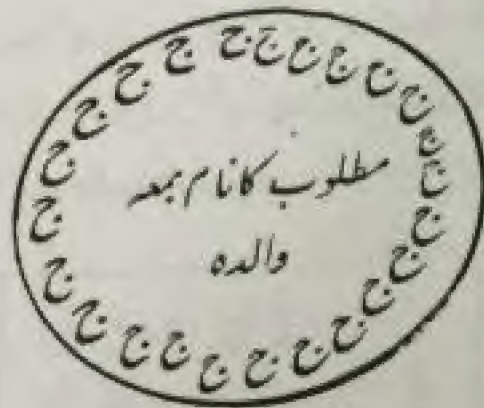 ج ج ج ج ج ج ج ج ج ج ج ج ج ج ج ج ج ج ج ج ج ج ج ج ج ج ج
مطلوب کا نام بمعہ
والدہ